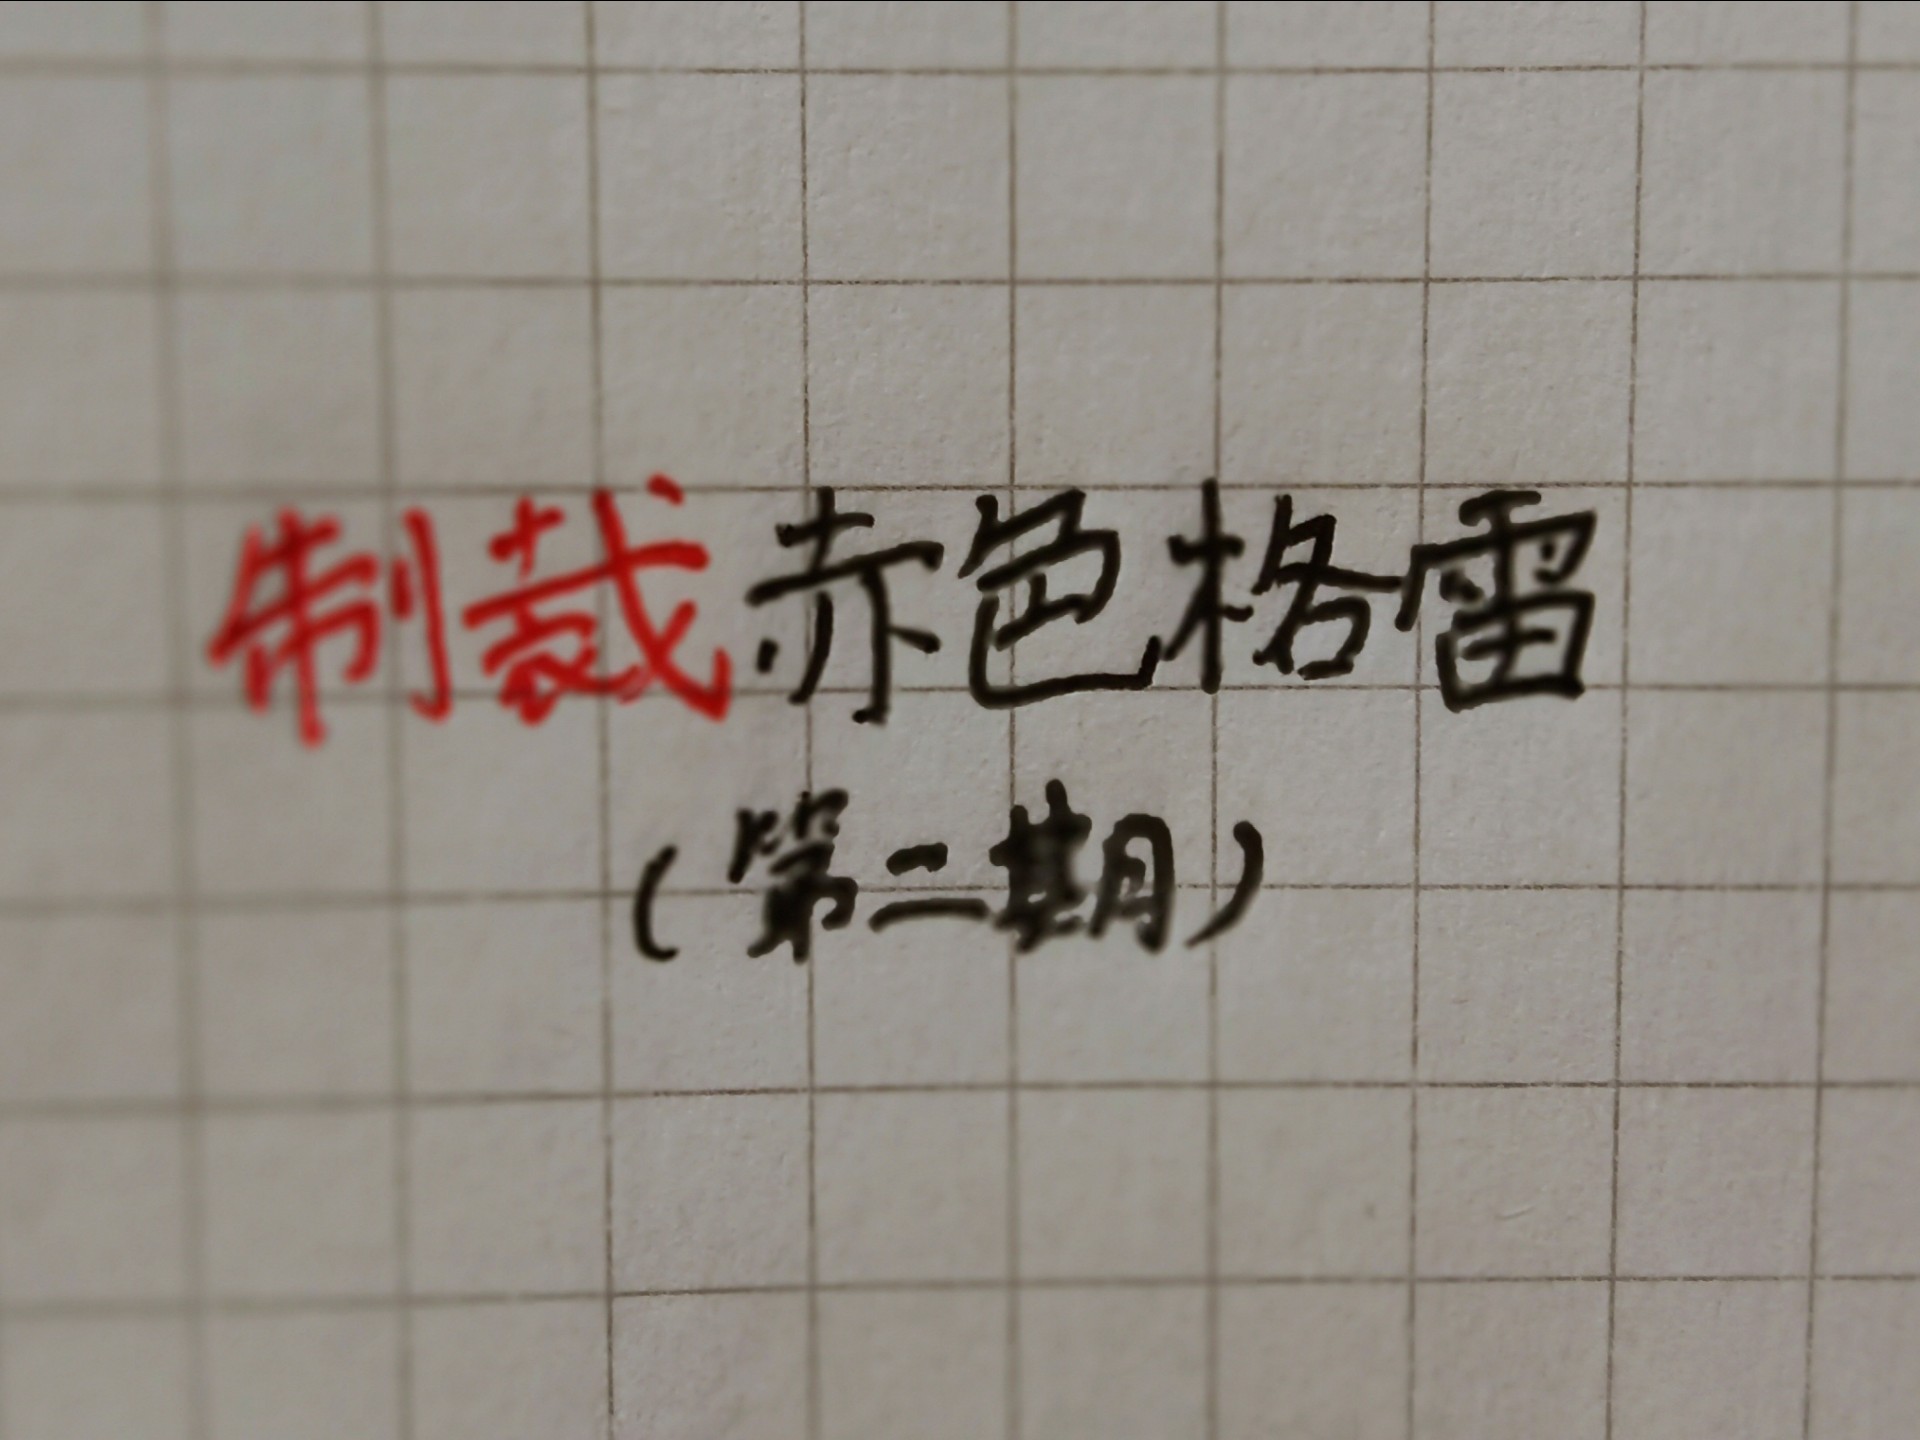 制裁赤色格雷
（第二期）